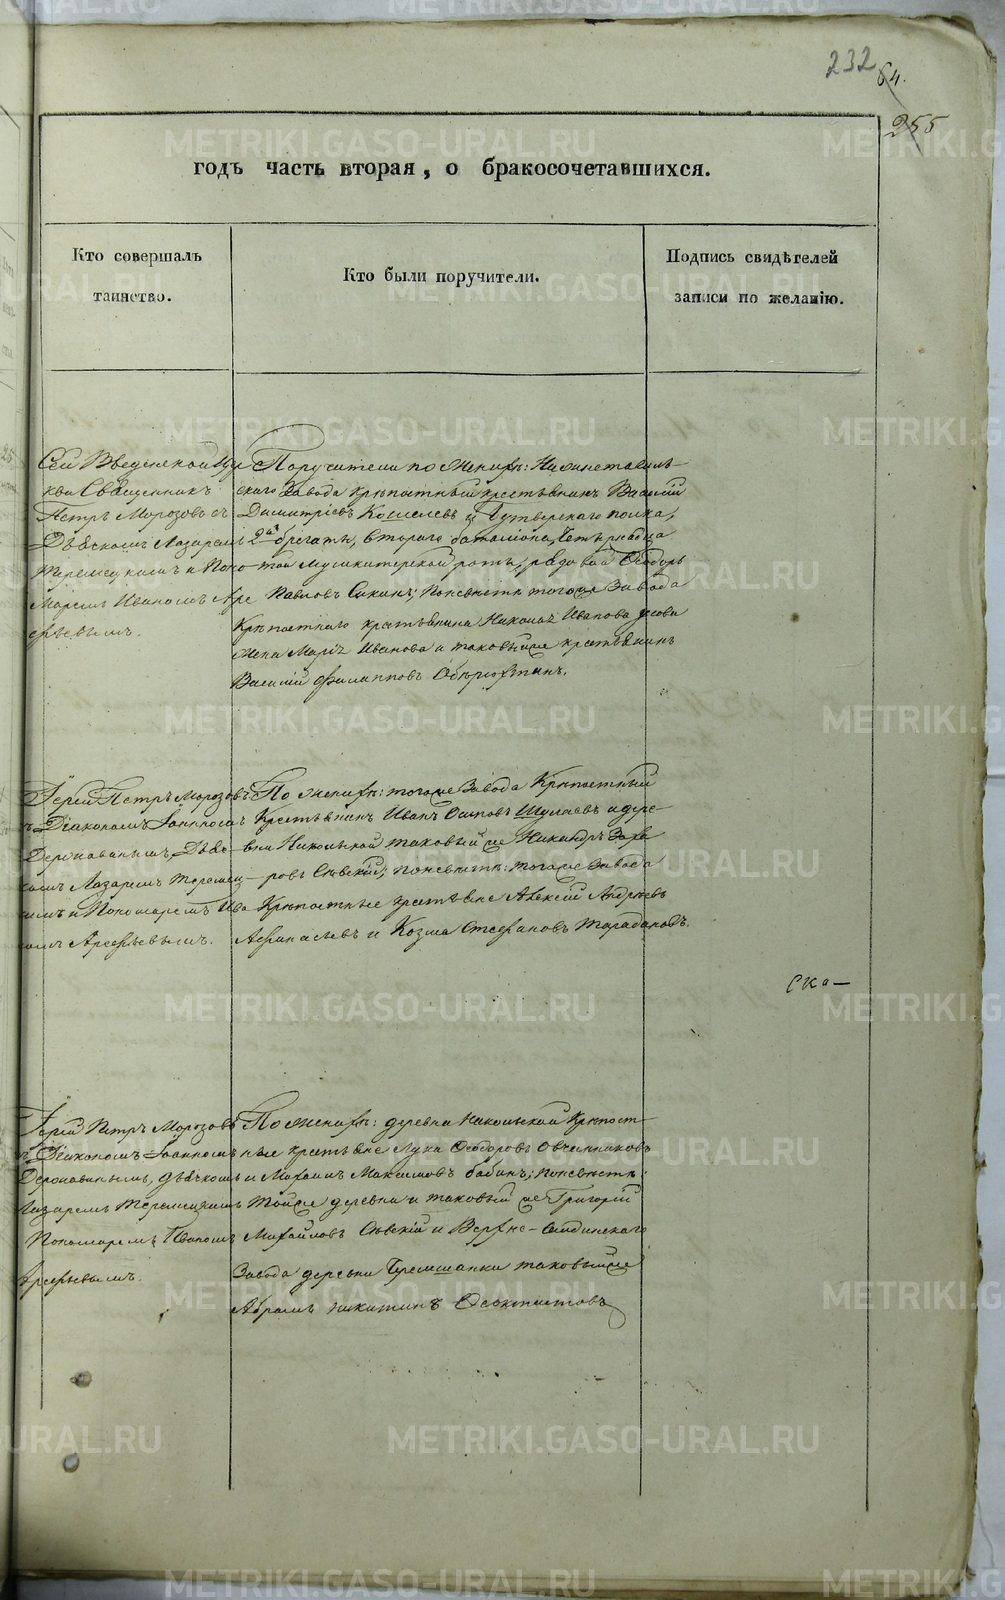 232
64.
255
годъ часть вторая, о бракосочетавшихся.
Кто совершалъ
таинство.
Кто были поручители.
Подпись свидѣтелей
записи по желанію.
Сей Введенской Цер
кви Священникъ
Петръ Морозовъ съ
Дьячкомъ Лазаремъ
и Поно
маремъ Иваномъ Арсе
Поручители по женихѣ:
скаго Завода крѣпостный крестьянинъ Василій
Димитріевъ Кошелевъ и полка,
2й бригады, втораго баталіона,
той Мушкетерской роты, рядовой Ѳеодоръ
Павловъ поневѣстѣ тогоже Завода
Крѣпостнаго крестьянина Иванова
жена Марія Иванова и таковыйже крестьянинъ
Василій Филипповъ
Іерей Петръ Морозовъ
съ Діакономъ Іоанномъ
Державинымъ, Дьяч-
комъ Лазаремъ
и Пономаремъ Ива
номъ Арсеньевымъ.
По женихѣ: тогоже Завода Крѣпостный
Крестьянинъ Иванъ Осиповъ и дере-
вни Никольской таковый же Никандръ Заха
ровъ поневѣстѣ: тогоже Завода
Крѣпостные крестьяне Алексій Андреевъ
Аѳанасьевъ и Козма Стефановъ Тарабановъ.
ска-
Іерей Петръ Морозовъ
съ Діакономъ Іоанномъ
Державинымъ, дьячкомъ
Лазаремъ
Пономаремъ Иваномъ
Арсеньевымъ.
По женихѣ: деревни Никольской Крѣпост-
ные крестьяне Лука Ѳеодоровъ Овчинниковъ
и Михаилъ Максимовъ Бабинъ; поневѣстѣ:
тойже деревни и таковый же Григорій
Михайловъ и Верхне-
Завода деревни таковыйже
Абрамъ Никитинъ Ѳеоктистовъ
METRIKI.GASO-URAL.RU